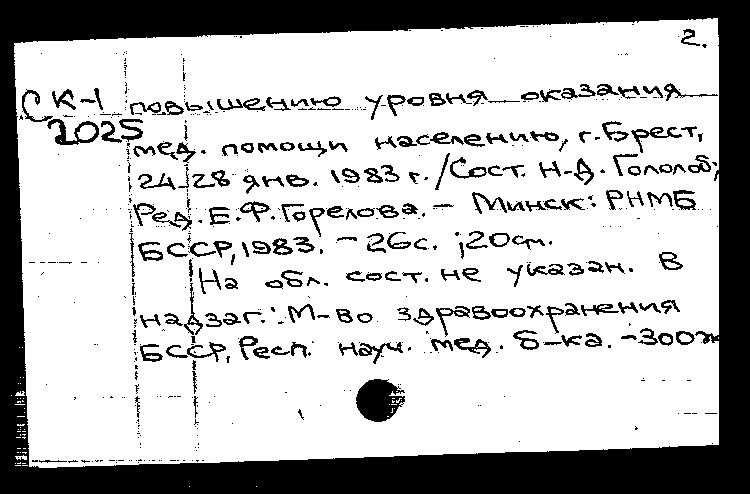 2.
СК-1 повышению уровня оказания
2025 мед. помощи населению, г. Брест,
24-28 янв. 1983 г. /Сост. Н.Д. Гололоб;
Ред. Е.Ф. Горелова. - Минск: РНМБ
БССР, 1983. - 26с. ; 20см.
На обл. сост. не указан. В
надзаг.: М-во здравоохранения
БССР, Респ. науч. мед. б-ка. - 300эк